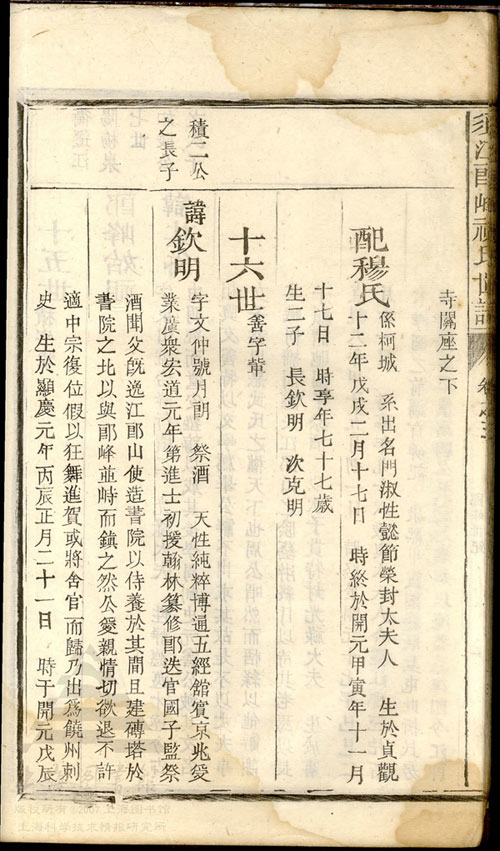 須江郎峰祝氏世譜
寺關座之下
配穆氏 係柯城 系出名門淑性懿節榮封太夫人 生於貞觀
十二年戊戌二月十七日 時終於開元甲寅年十一月
十七日 時享年七十七歲
生二子 長欽明 次克明
十六世 善字輩
積二公
之長子
諱欽明 字文仲號月朗 祭酒 天性純粹博通五經舘質京兆爰
業廣衆宏道元年第進士初授翰林纂修郎迭官國子監祭
酒聞父旣逸江郎山使造書院以侍養於其間且建磚塔於
書院之北以與郎峰並時而鎮之然公愛親情切欲退不許
適中宗復位假以狂舞進賀或將舍官而歸乃出爲饒州刺
史 生於顯慶元年丙辰正月二十一日 時于開元戊辰
版权所有©2007上海图书馆
上海科学技术情报研究所